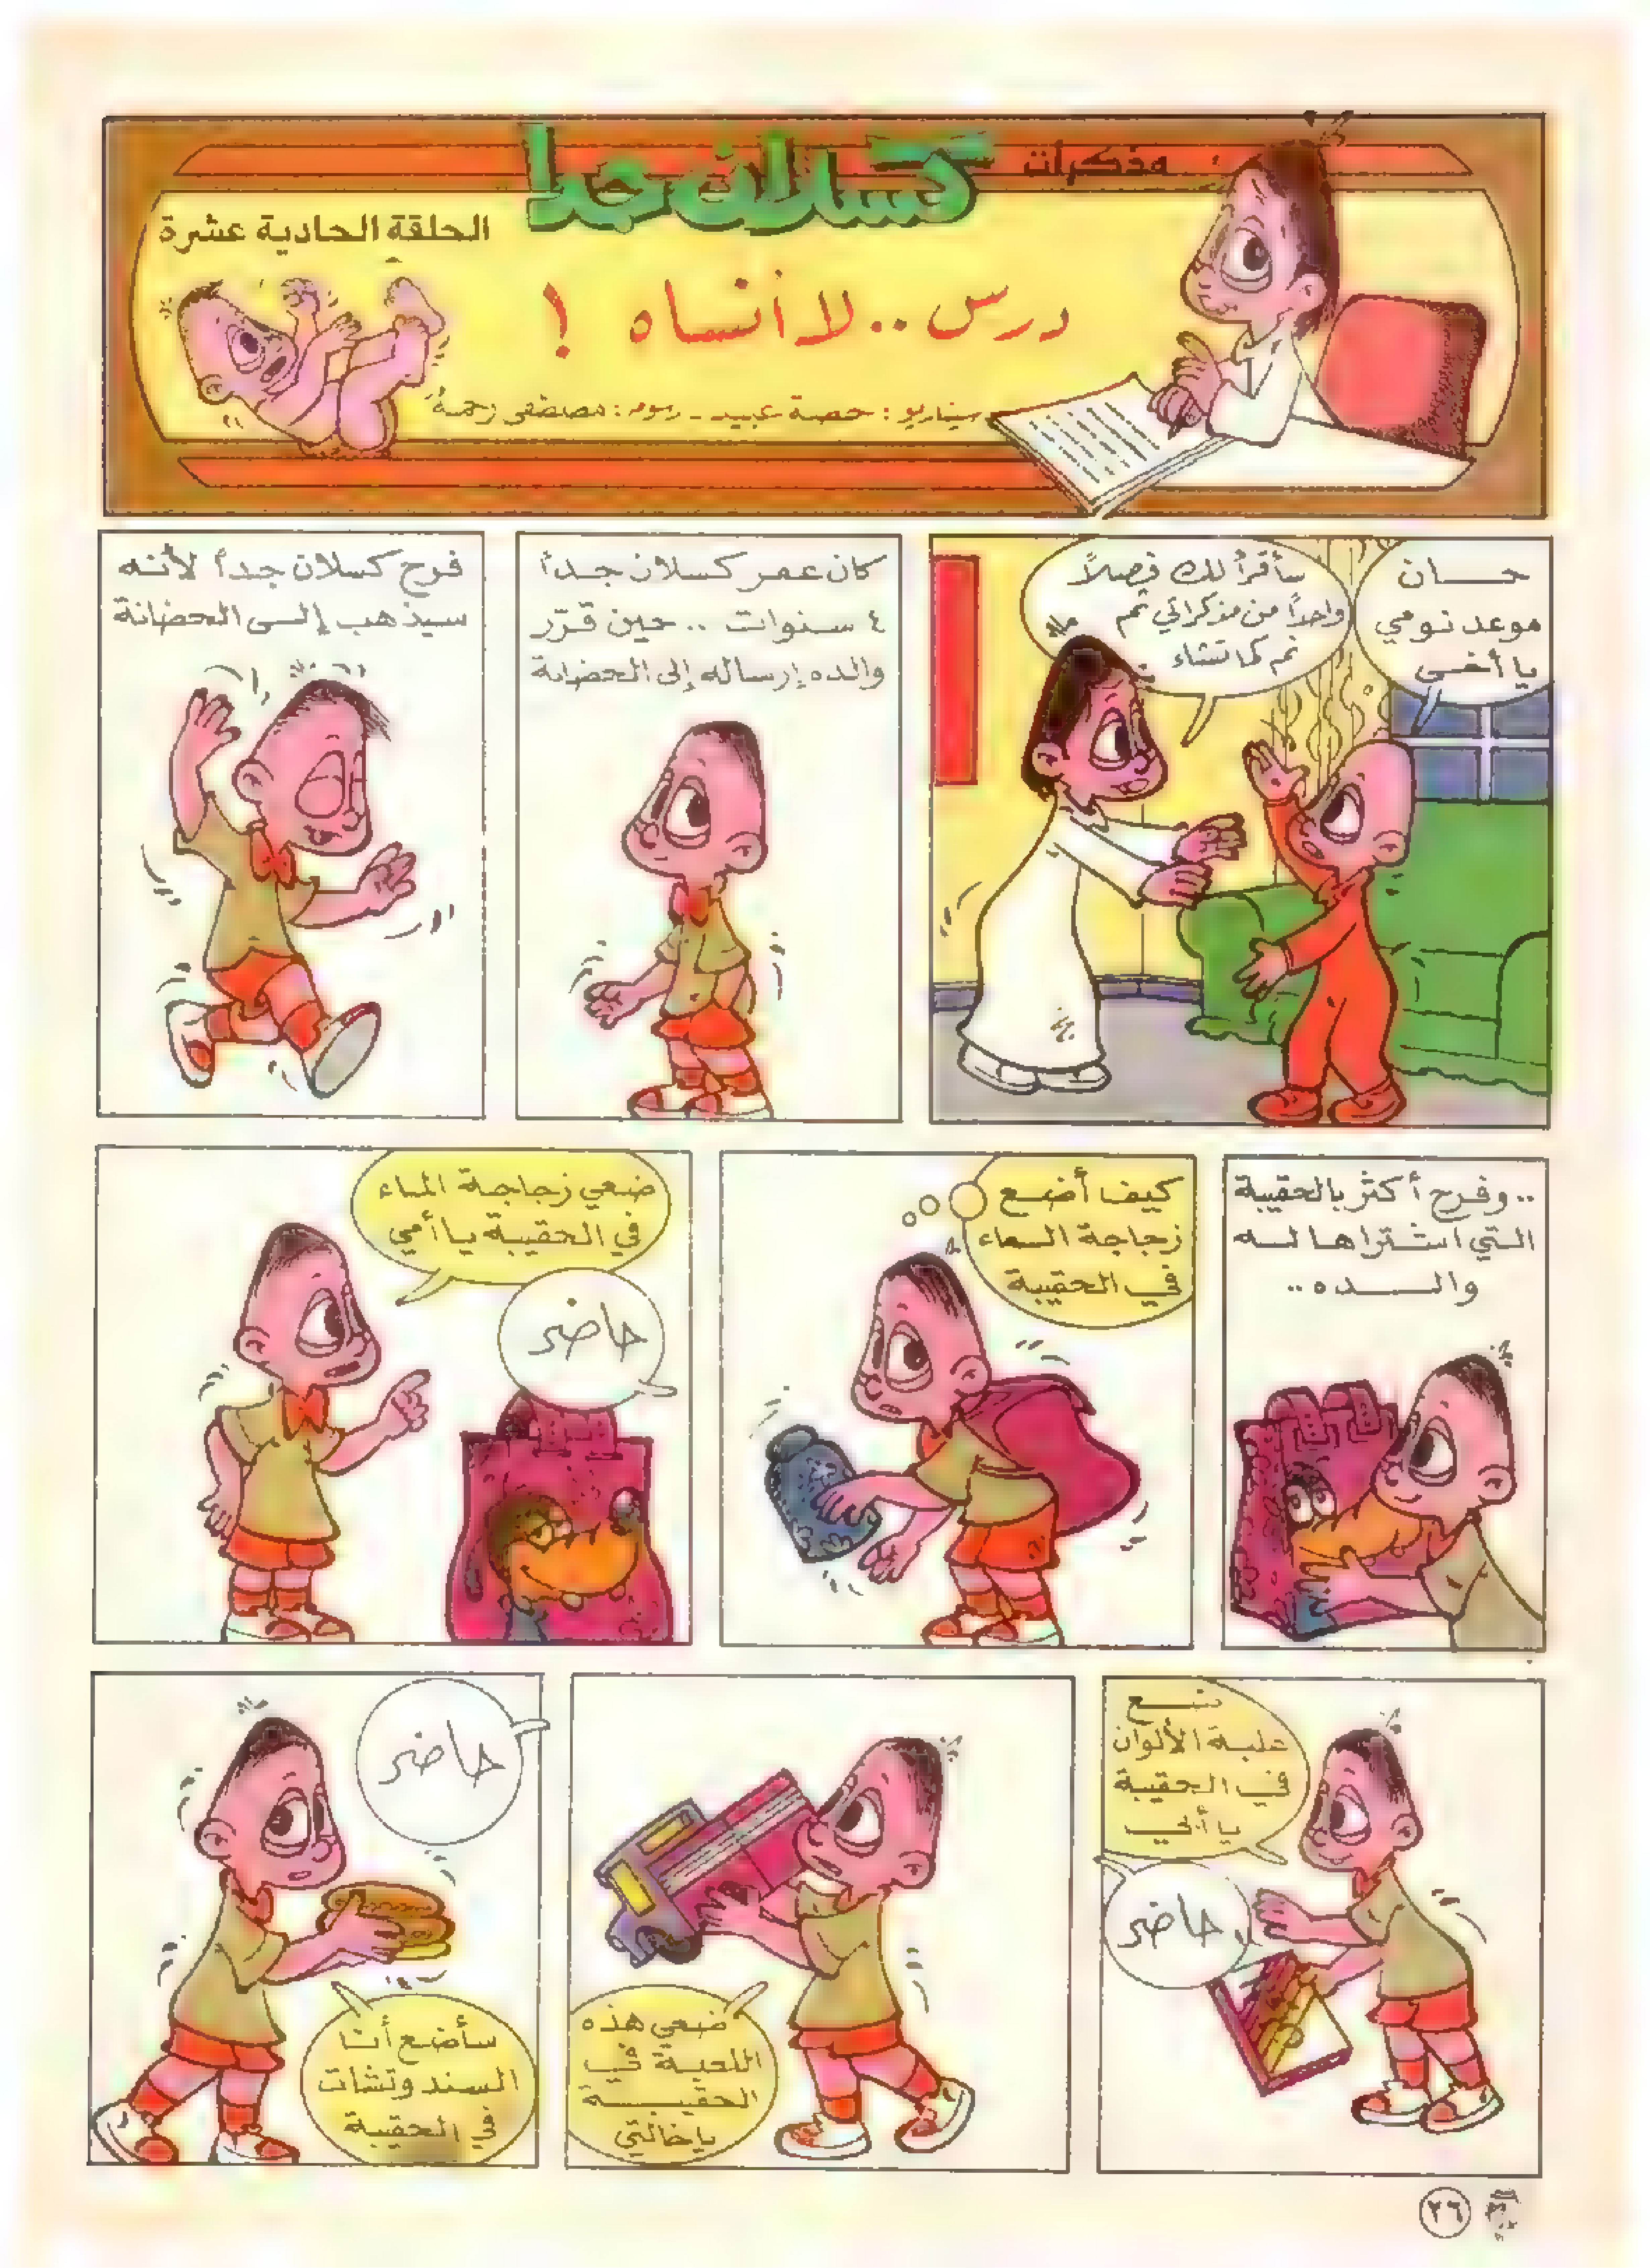 مذكرات
كسلان جدا
الحلقة الحادية عشرة
درس .. لا أنساه !
سيناريو : حصة عبيد - رسوم : مصطفى رحمة
حان
موعد نومي
يا أخي
سأقرأ لك فصلاً
واحداً من مذكراتي ثم
نم كما تشاء
كان عمر كسلان جداً
٤ سنوات .. حين قرّر
والده إرساله إلى الحضانة
فرح كسلان جداً لأنه
سيذهب إلى الحضانة
.. وفرح أكثر بالحقيبة
التي اشتراها له
والده ..
كيف أضع
زجاجة الماء
في الحقيبة
ضعي زجاجة الماء
في الحقيبة يا أمي
حاضر
ضع
علبة الألوان
في الحقيبة
يا أبي
حاضر
ضعي هذه
اللعبة في
الحقيبة
يا خالتي
حاضر
سأضع أنا
السندوتشات
في الحقيبة
٢٦